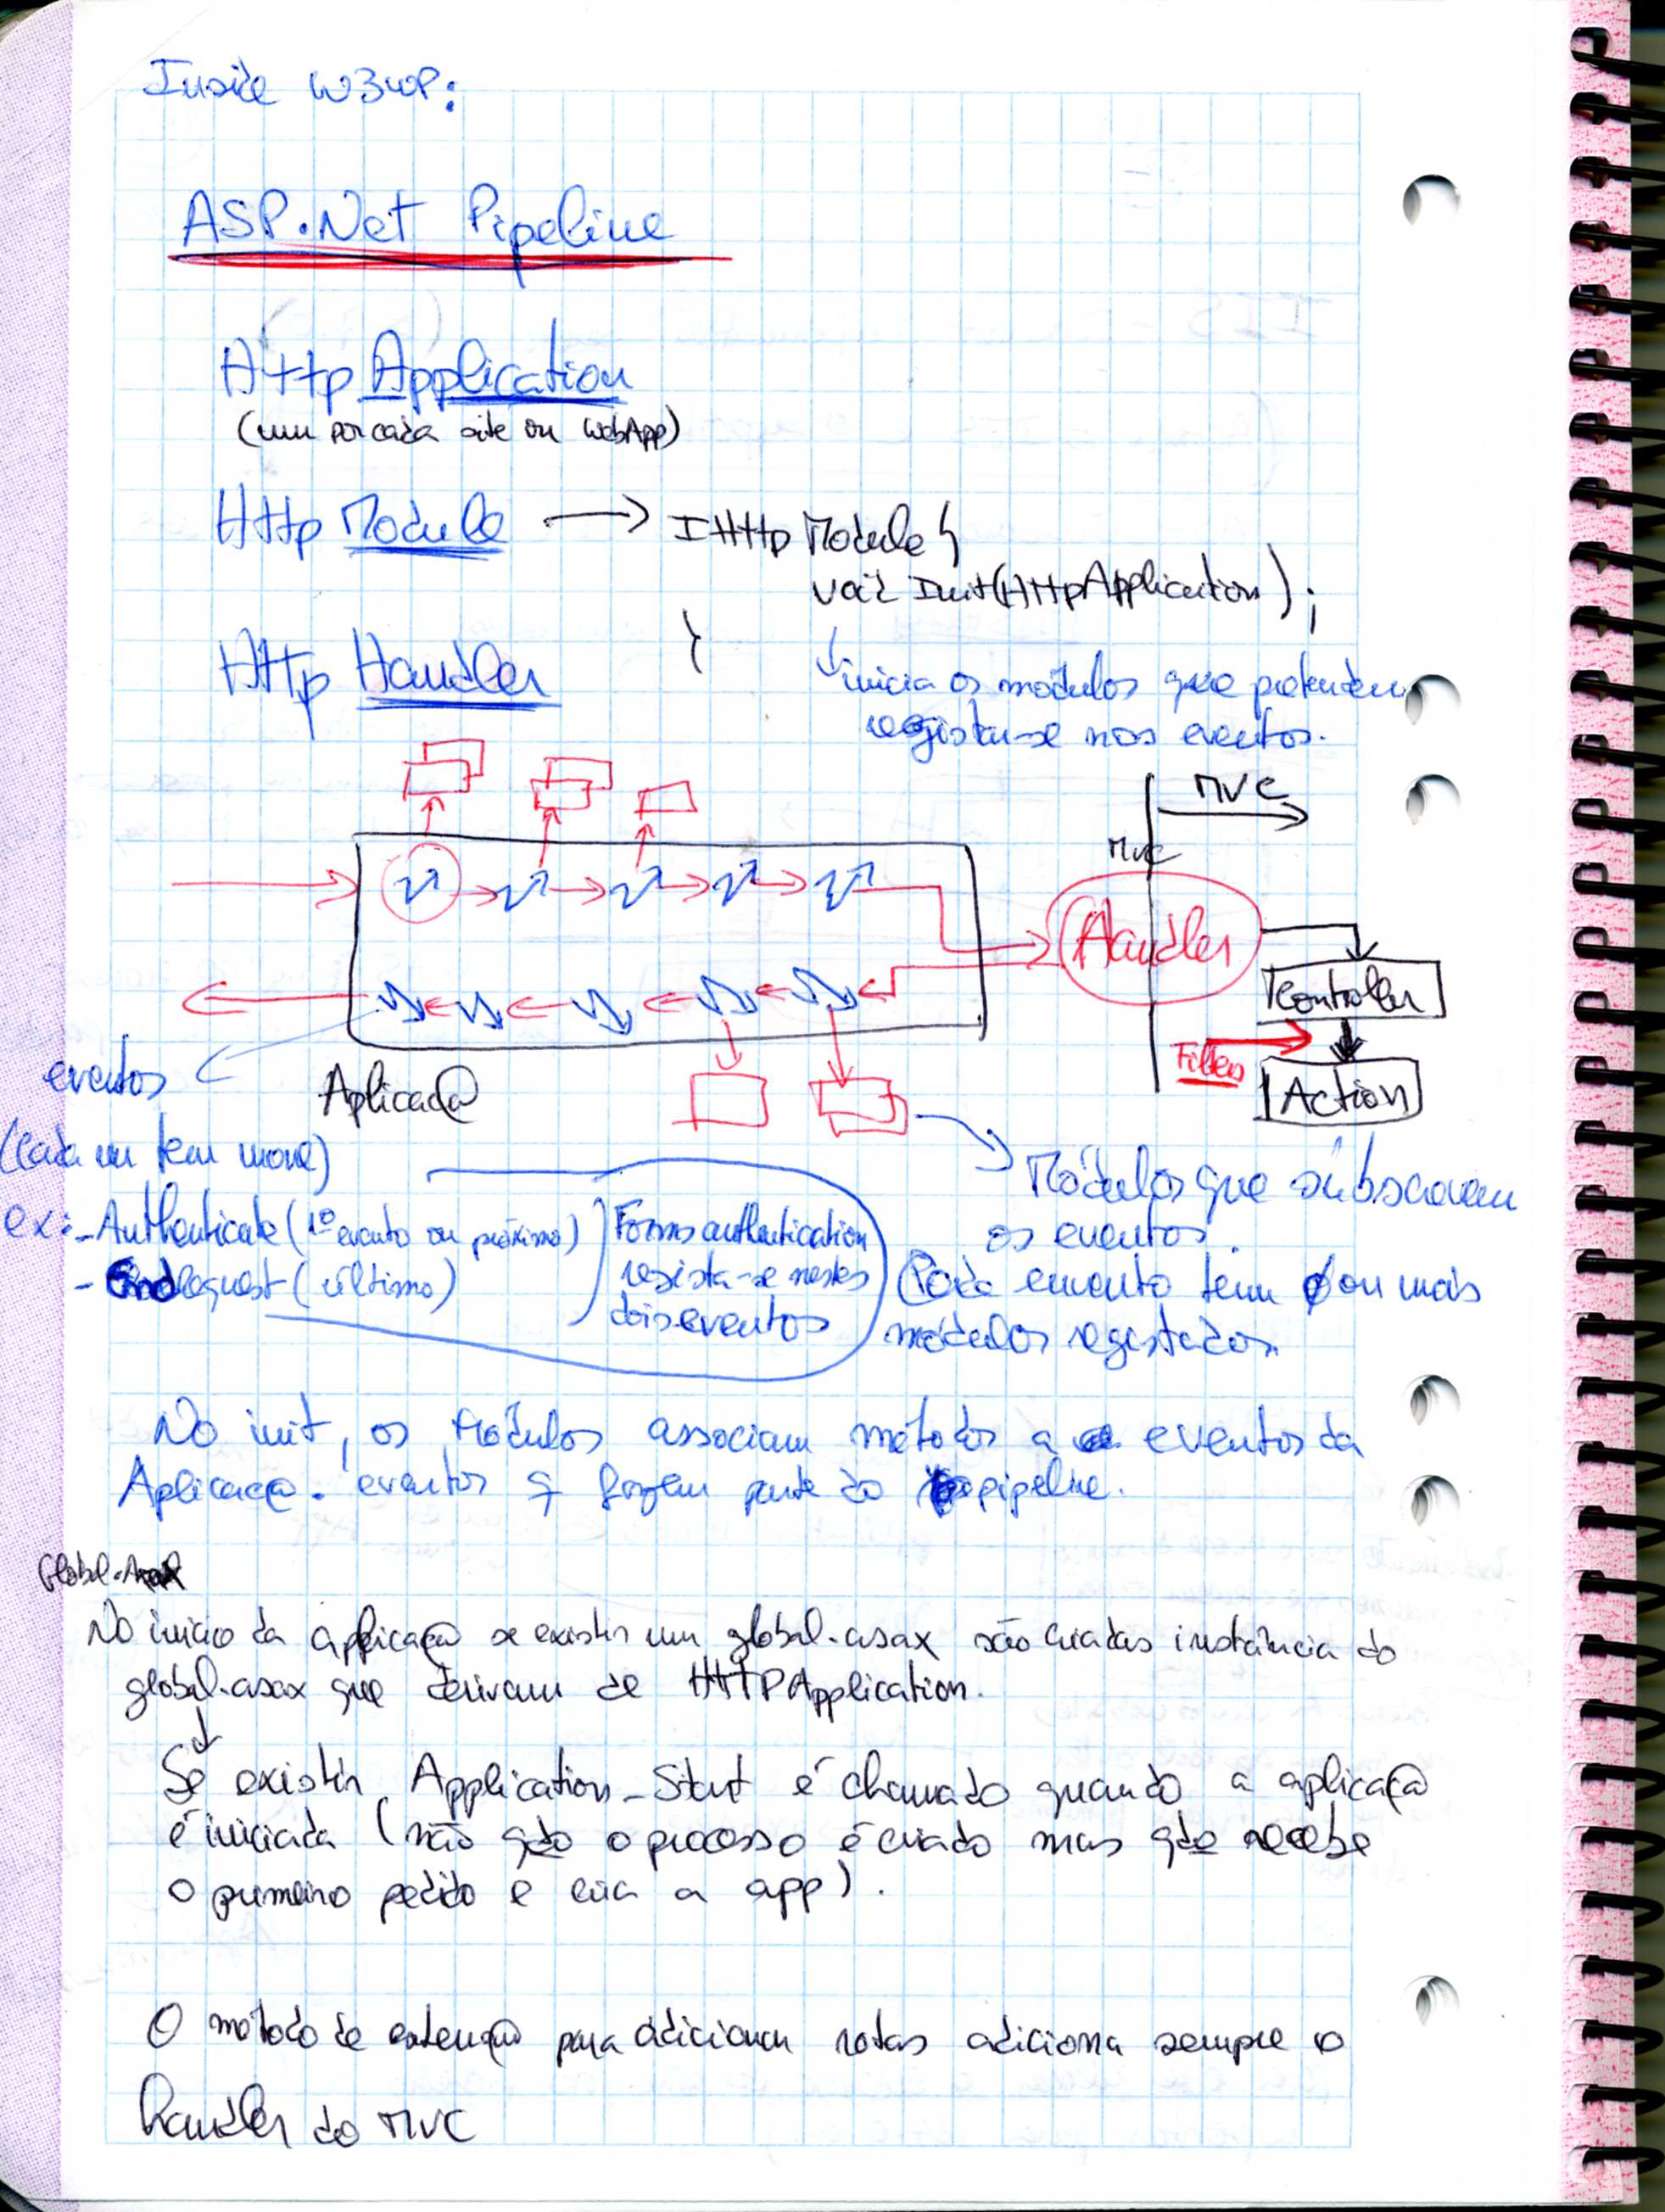 Inside W3WP:
ASP.Net Pipeline
Http Application
(um por cada site ou WebApp)
Http Module → IHttpModule {
void Init(HttpApplication);
}
Http Handler
inicia os módulos que pretendem
registar-se nos eventos.
MVC
MVC
Handler
Controller
Filters
Action
eventos
Aplicaç@
(cada um tem nome)
ex: - Authenticate (1º evento ou próximo)
- EndRequest (último)
Forms authentication
regista-se nestes
dois eventos
Módulos que subscrevem
os eventos.
(Cada evento tem 0 ou mais
módulos registados.
No init, os Módulos associam métodos a eventos da
Aplicaç@. eventos q fazem parte do pipeline.
Global.Asax
No início da aplicaç@ se existir um global.asax são criadas instância do
global.asax que derivam de HTTPApplication.
Se existir Application_Start é chamado quando a aplicaç@
é iniciada (não qdo o processo é criado mas qdo recebe
o primeiro pedido e cria a app).
O método de extenç@ para adicionar rotas adiciona sempre o
handler do MVC